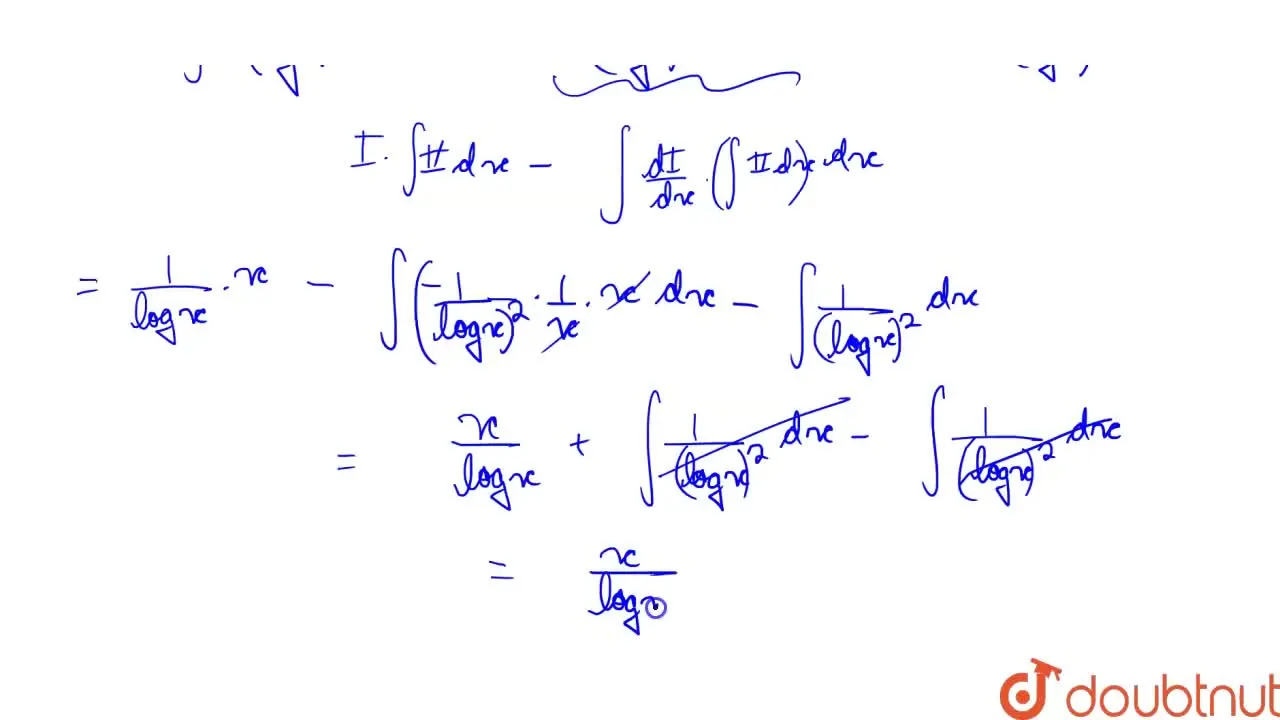 I. ∫ II dx − ∫ dI/dx . (∫ II dx) dx
= 1/logx . x − ∫ (−1/(logx)² . 1/x . x dx − ∫ 1/(logx)² dx
= x/logx + ∫ 1/(logx)² dx − ∫ 1/(logx)² dx
= x/logx
doubtnut